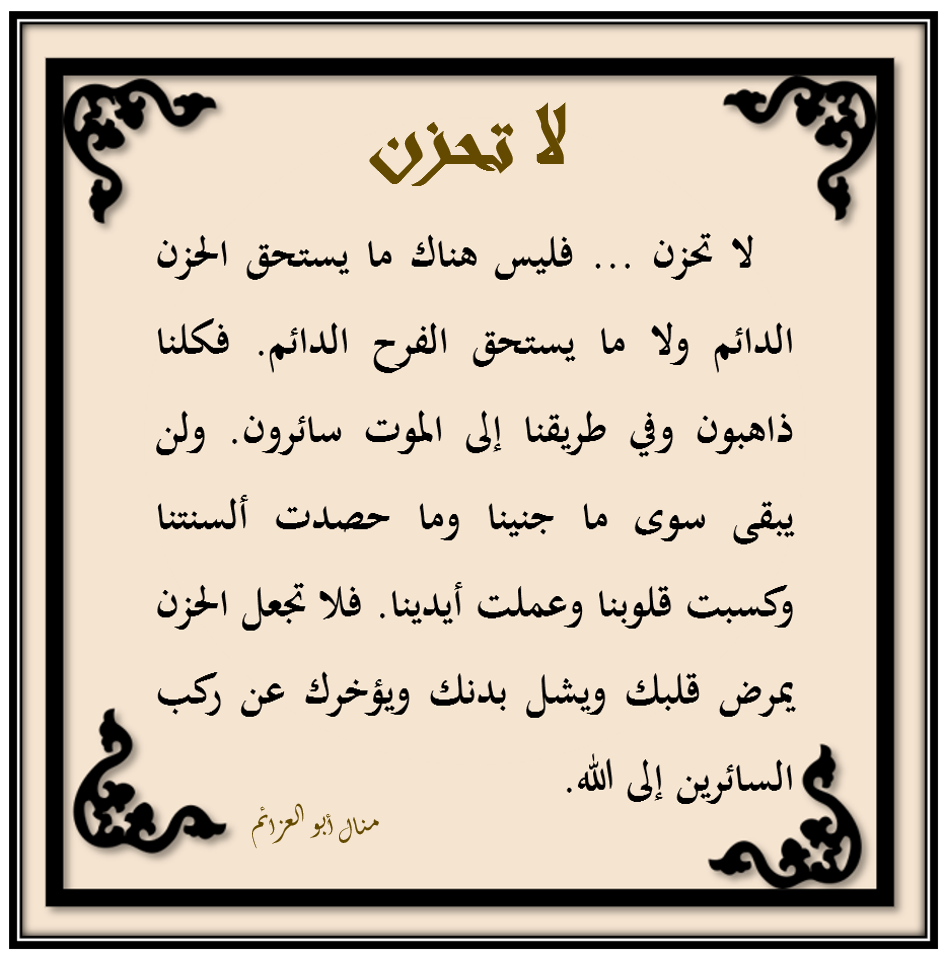 لا تحزن
لا تحزن ... فليس هناك ما يستحق الحزن
الدائم ولا ما يستحق الفرح الدائم. فكلنا
ذاهبون وفي طريقنا إلى الموت سائرون. ولن
يبقى سوى ما جنينا وما حصدت ألسنتنا
وكسبت قلوبنا وعملت أيدينا. فلا تجعل الحزن
يمرض قلبك ويشل بدنك ويؤخرك عن ركب
السائرين إلى الله.
منال أبو العزائم